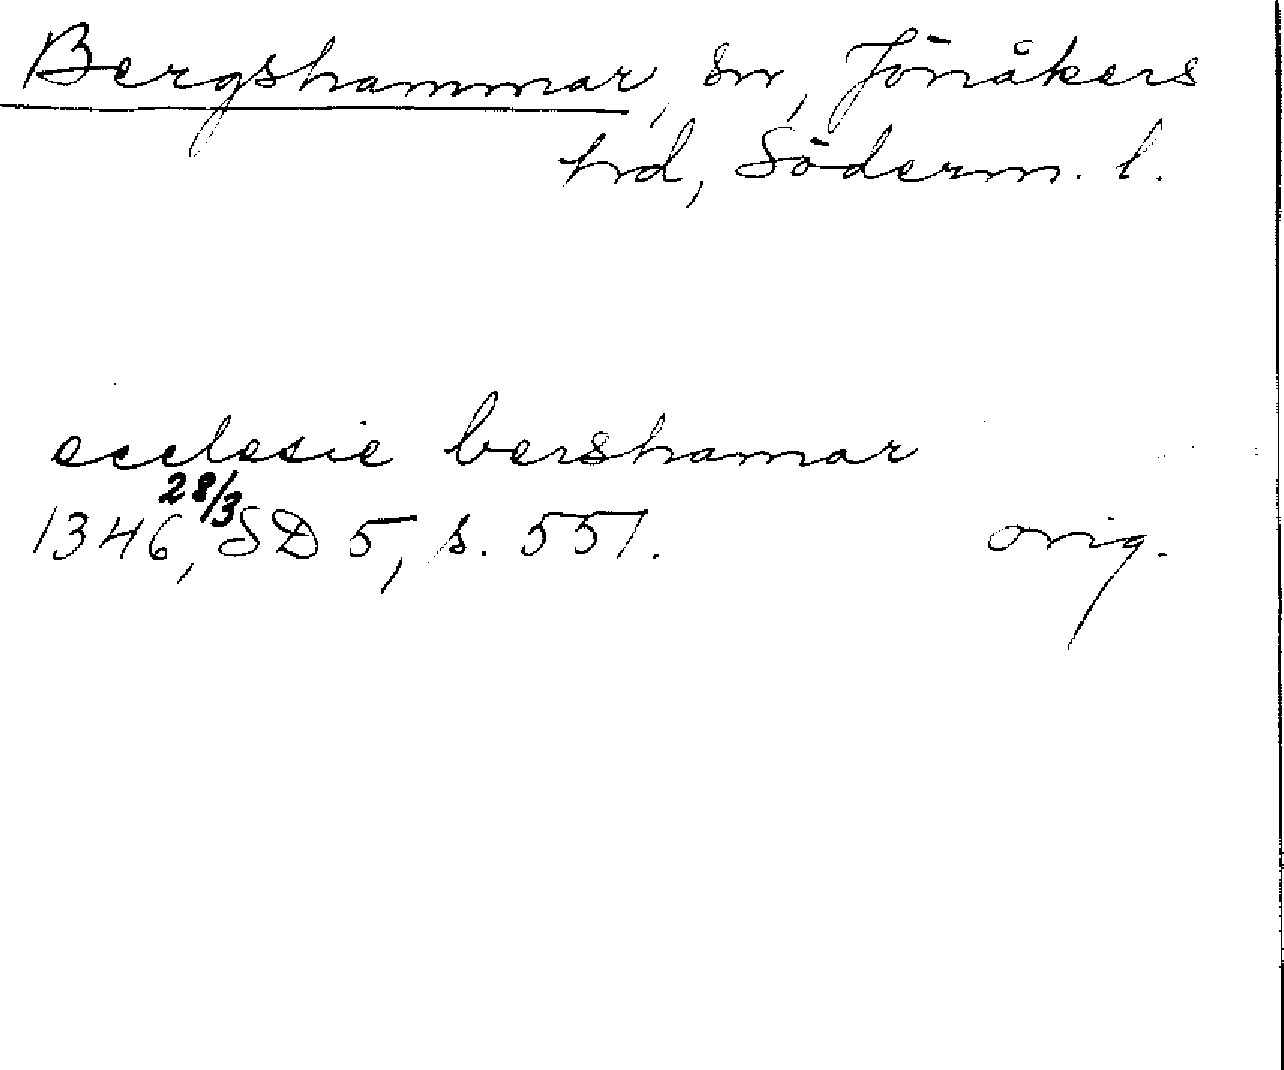 Bergshammar, sn, Jönåkers
hd, Söderm. l.
ecclesie bershamar
1346, 28/3 SD 5, s. 551. orig.